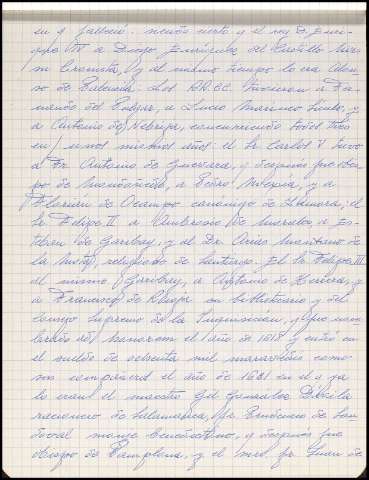 en q falleció. siendo cierto y el rey D. Enri-
que IV a Diego Enríquez del Castillo tuvo
su Cronista, y al mismo tiempo lo era Alon-
so de Palencia. Los RR.CC. tuvieron a Fer-
nando del Pulgar, a Lucio Marineo Sículo, y
a Antonio de Nebrija, concurriendo todos tres
en unos mismos años: el Sr Carlos V tuvo
a Fr. Antonio de Guevara, y después fue obis-
po de Mondoñedo, a Pedro Mexía, y a
Florián de Ocampo canónigo de Zamora; el
Sr Felipe II a Ambrosio de Morales a Es-
teban de Garibay, y al Dr. Arias Montano de
la Mota, religioso de Santiago. El Sr Felipe III
el mismo Garibay, a Antonio de Herrera, y
a Francisco de Rioja su bibliotecario y del
consejo supremo de la Inquisición, y que nom-
brado el año de 1618 y entró en
el sueldo de ochenta mil maravedíes como
sus compañeros el año de 1621 en el q ya
lo eran el maestro Gil González Dávila
racionero de Salamanca, fr. Prudencio de San-
doval monje benedictino, y después fue
obispo de Pamplona, y el mro. fr. Juan de